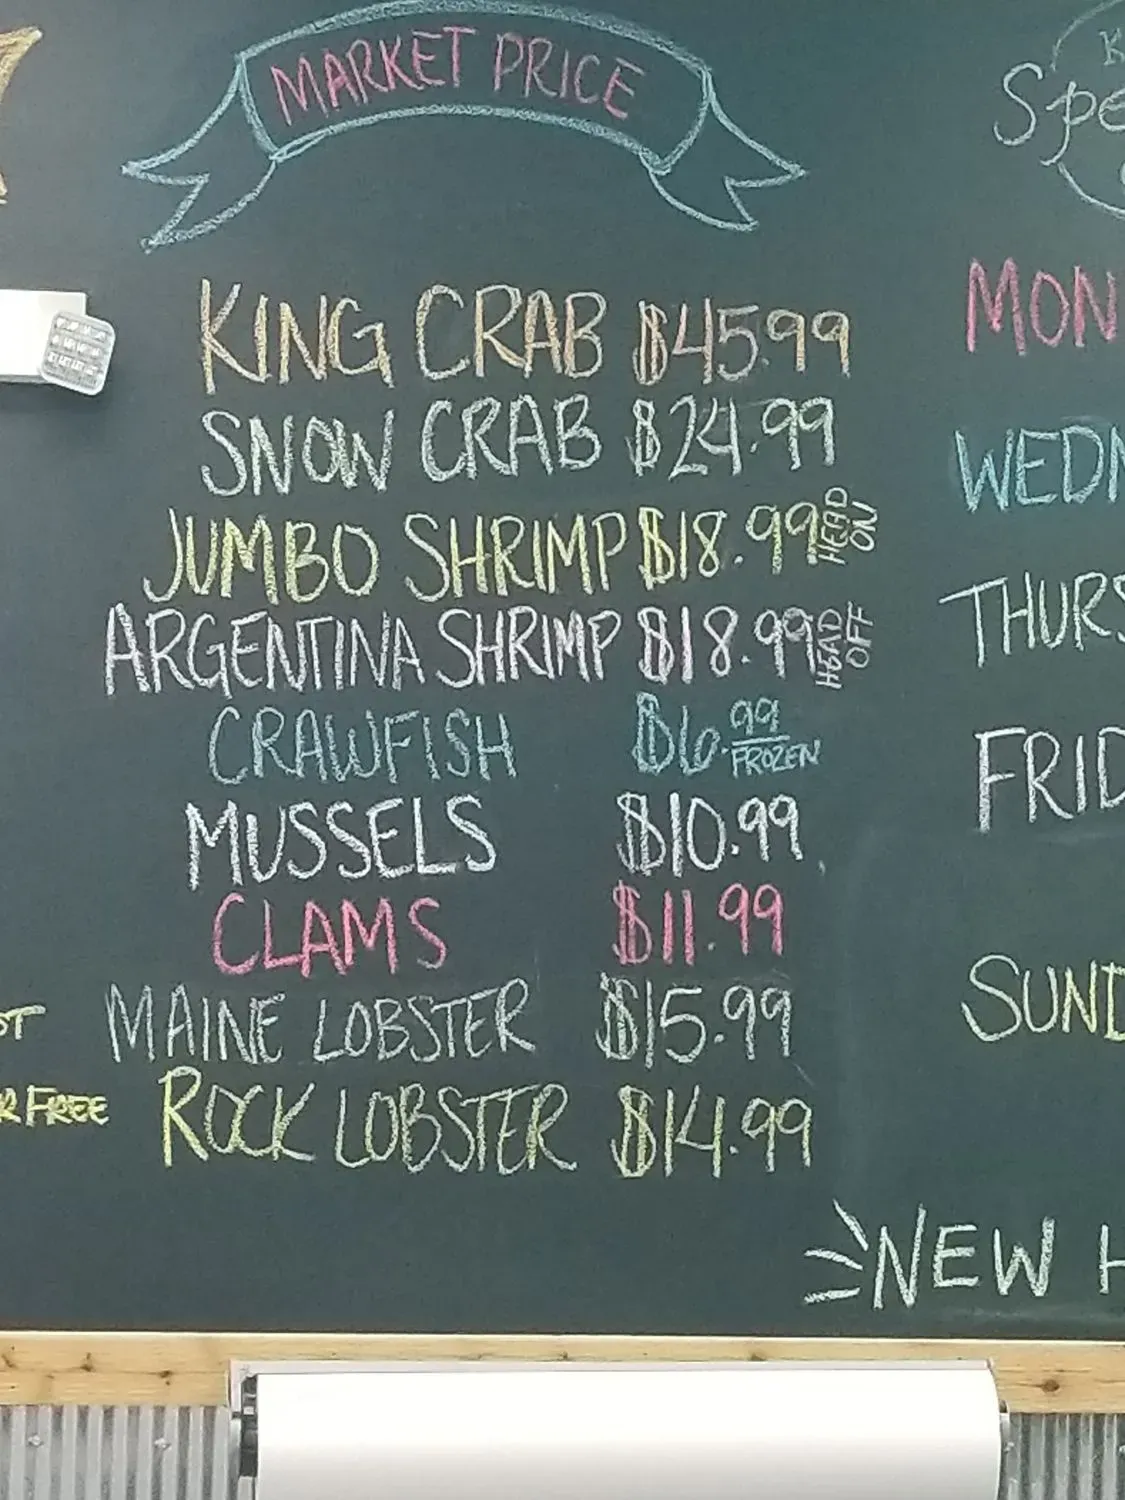 MARKET PRICE
KING CRAB $45.99
SNOW CRAB $24.99
JUMBO SHRIMP $18.99 HEAD ON
ARGENTINA SHRIMP $18.99 HEAD OFF
CRAWFISH $6.99 FROZEN
MUSSELS $10.99
CLAMS $11.99
MAINE LOBSTER $15.99
ROCK LOBSTER $14.99
FREE
K
Spe
MON
WEDN
THURS
FRID
SUND
NEW H